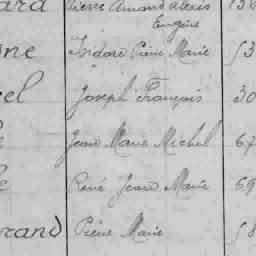 ard Pierre Amand Alexis 136
Eugène
ne Isidore Pierre Marie 53
el Joseph François 30
Jean Marie Michel 67
e René Jean Marie 69
rand Pierre Marie 58